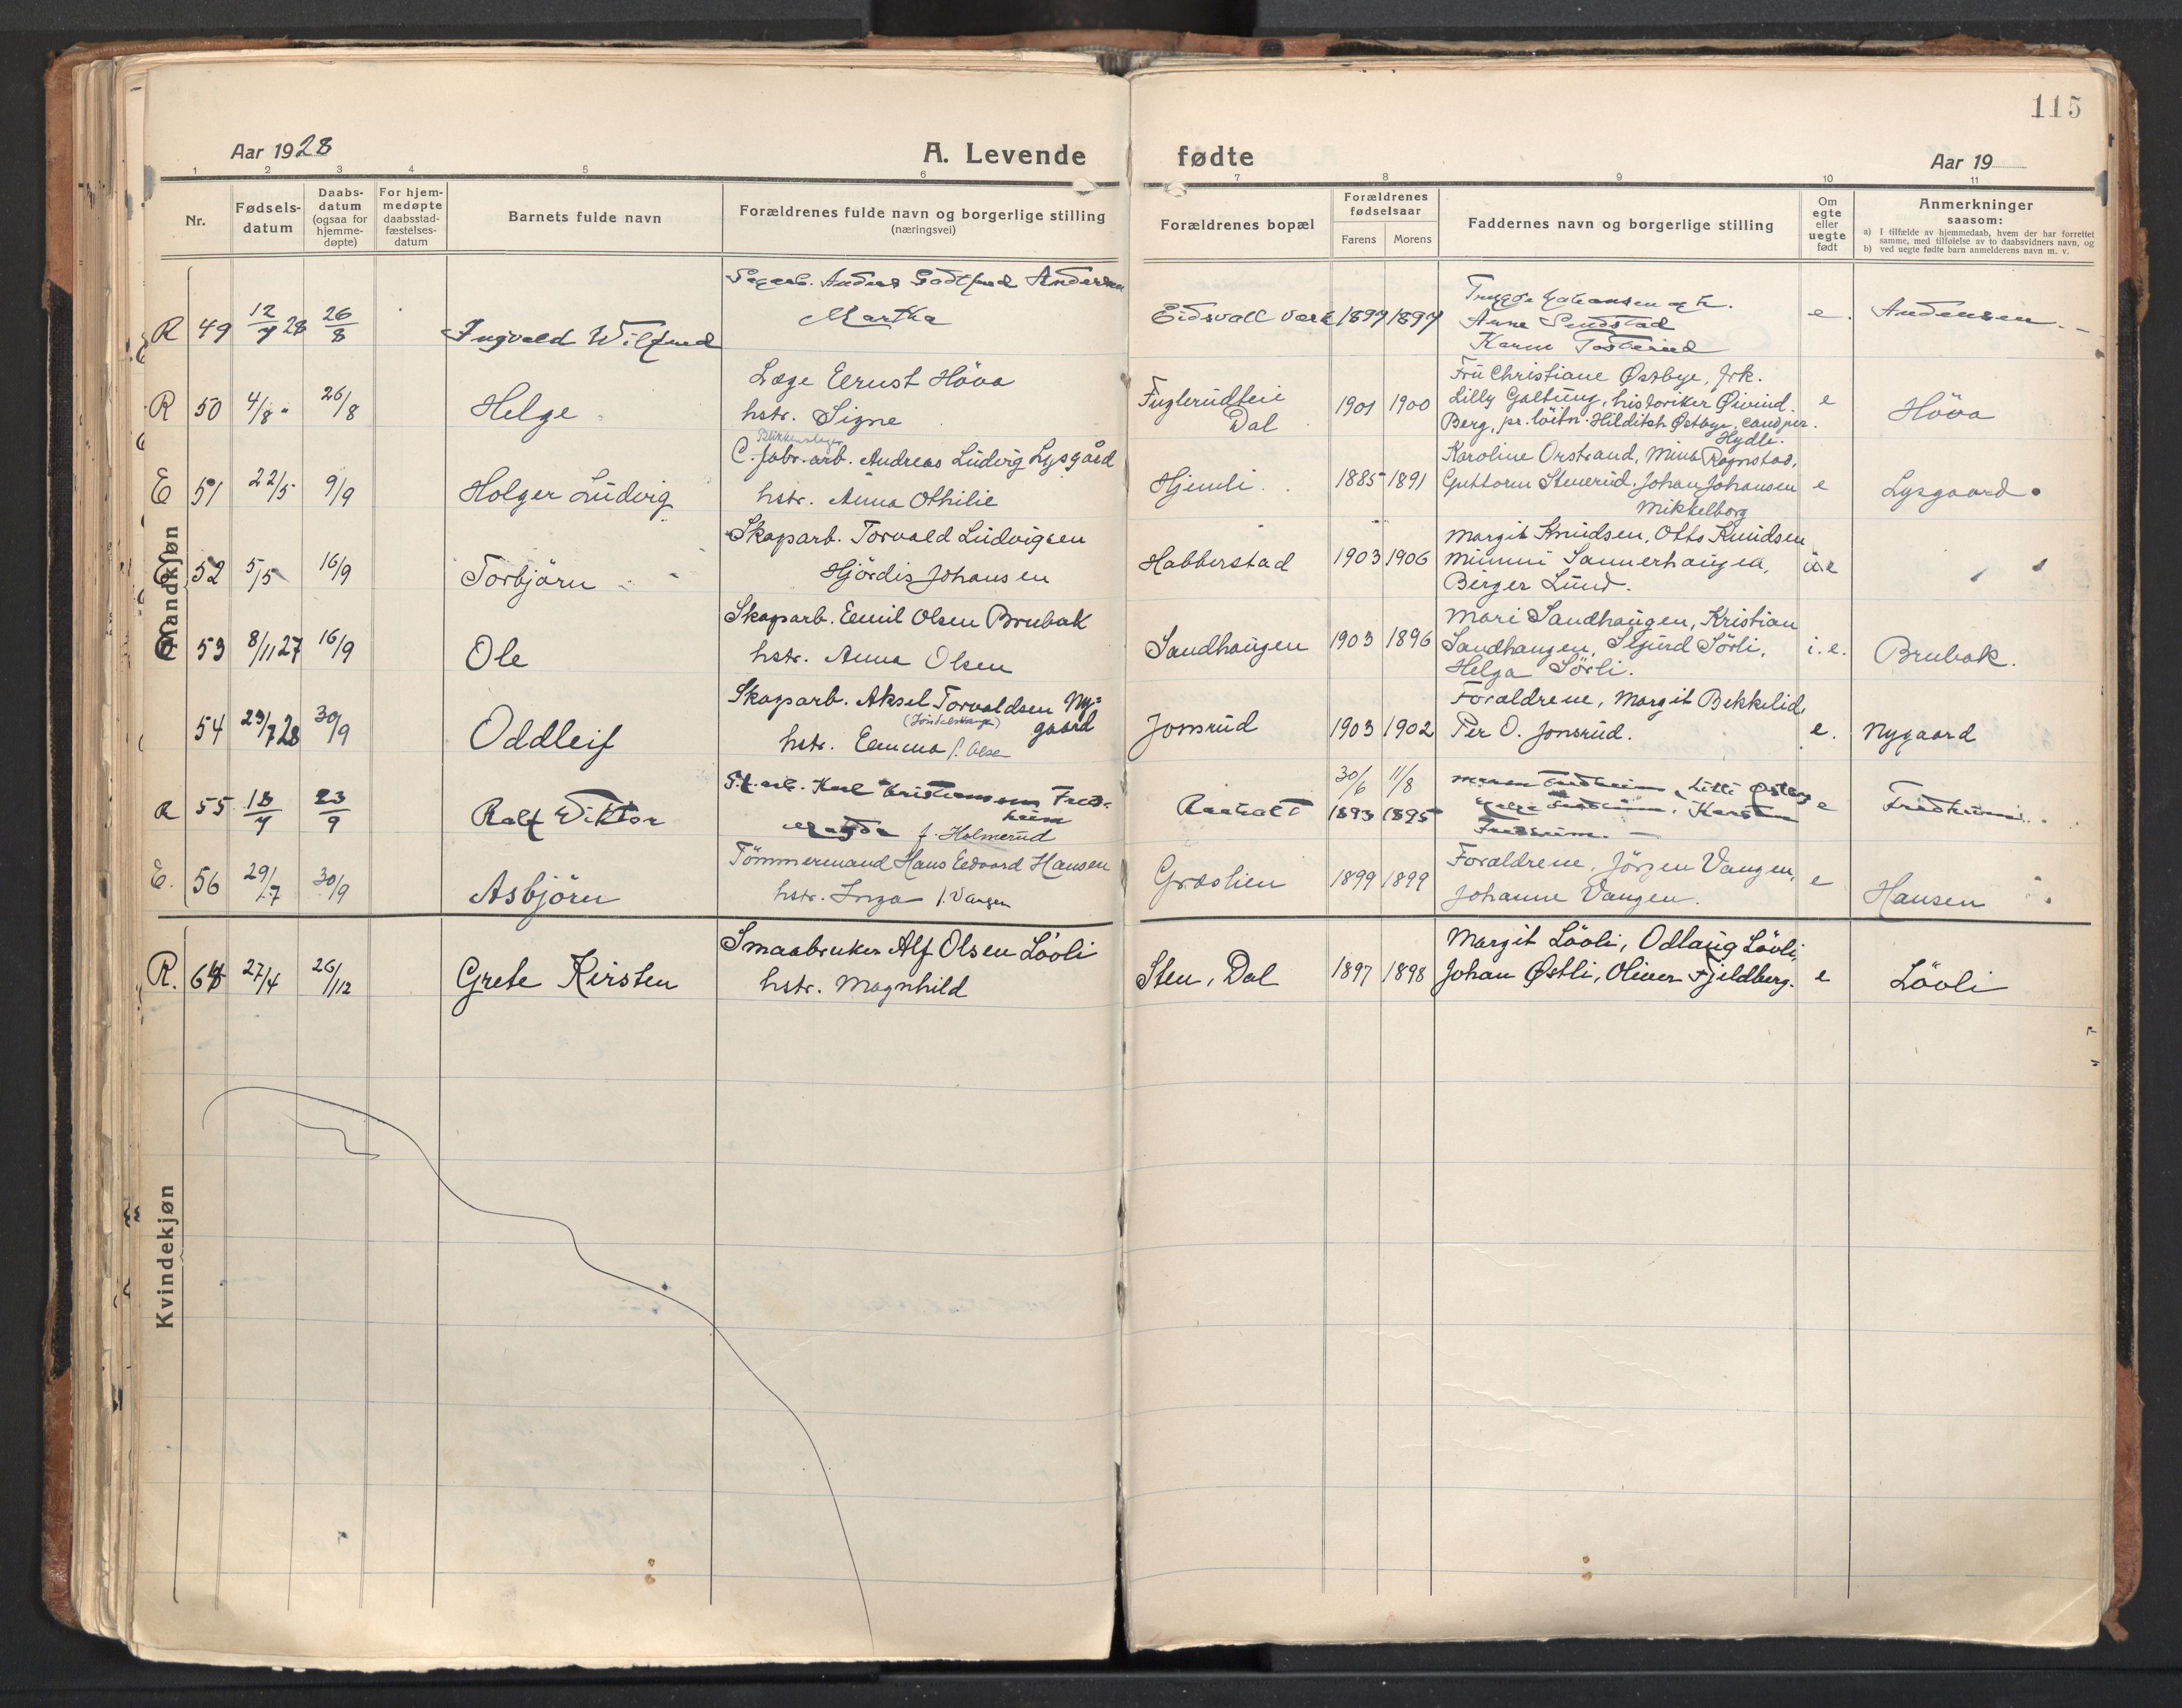 115
Aar 1928
A. Levende
fødte
Aar 19
1 2 3 4 5 6 7 8 9 10 11
Nr.
Fødsels-
datum
Daabs-
datum
(ogsaa for
hjemme-
døpte)
For hjem-
medøpte
daabsstad-
fæstelses-
datum
Barnets fulde navn
Forældrenes fulde navn og borgerlige stilling
(næringsvei)
Forældrenes bopæl
Forældrenes
fødselsaar
Farens Morens
Faddernes navn og borgerlige stilling
Om
egte
eller
uegte
født
Anmerkninger
saasom:
a) I tilfælde av hjemmedaab, hvem der har forrettet
samme, med tilføielse av to daabsvidners navn, og
b) ved uegte fødte barn anmelderens navn m. v.
Mandkjøn
R 49 12/7 28 26/8 Ingvald Wilfred
Anders Godtfred Andersen
Martha
Eidsvall Værk 1899 1897
Trygve Johansen og h.
Arne Sendstad
Karen
e. Andersen.
R 50 4/8 " 26/8 Helge
Læge Ernst Höva
hstr. Signe
Fuglerudteie
Dal
1901 1900
Fru Christiane Østbye, frk.
Lilly Galtung, historiker Øivind
Berg, pr. löitn. Hilditch Østbye,
Hydle.
e Höva
E 51 22/5 9/9 Holger Ludvig
Blikkenslager
C. fabr. arb. Andreas Ludvig Lysgård
hstr. Anna Othilie
Hjemli. 1885 1891
Karoline Orstrand, Mina Ragnstad,
Guttorm Stenerud, Johan Johansen
Mikkelborg
e Lysgaard.
E 52 5/5 16/9 Torbjörn
Skaparb. Torvald Ludvigsen
Hjördis Johansen
Habberstad 1903 1906
Margit Knudsen, Otto Knudsen
Mimmi Sannerhaugen,
Birger Lund.
u.e
E 53 8/11 27 16/9 Ole
Skaparb. Emil Olsen Brubak
hstr. Anna Olsen
Sandhaugen 1903 1896
Mari Sandhaugen, Kristian
Sandhaugen, Sigurd Sörli,
Helga Sörli.
i.e. Brubak.
54 23/7 28 30/9 Oddleif
Skaparb. Aksel Torvaldsen Ny=
gaard
hstr. Emma f. Olsen
Jonsrud 1903 1902
Forældrene, Margit Bekkelid,
Per O. Jonsrud.
e. Nygaard
R 55 18/7 23/9 Ralf Viktor
Karl Kristiansen Fred-
heim
Magda f. Holmerud
Raaholt
30/6 11/8
1893 1895
Maren Fredheim, Lilli Østby
Helge Fredheim, Karsten
Fredheim. —
e Fredheim.
E. 56 29/7 30/9 Asbjörn
Tömmermand Hans Edvard Hansen
hstr. Inga f. Vangen
Græslien 1899 1899
Forældrene, Jörgen Vangen,
Johanne Vangen.
e Hansen
Kvindekjøn
R. 64 27/4 26/12 Grete Kirsten
Smaabruker Alf Olsen Lövli
hstr. Magnhild
Sten, Dal 1897 1898
Margit Lövli, Odlaug Lövli,
Johan Østli, Oliver Fjeldberg.
e Lövli